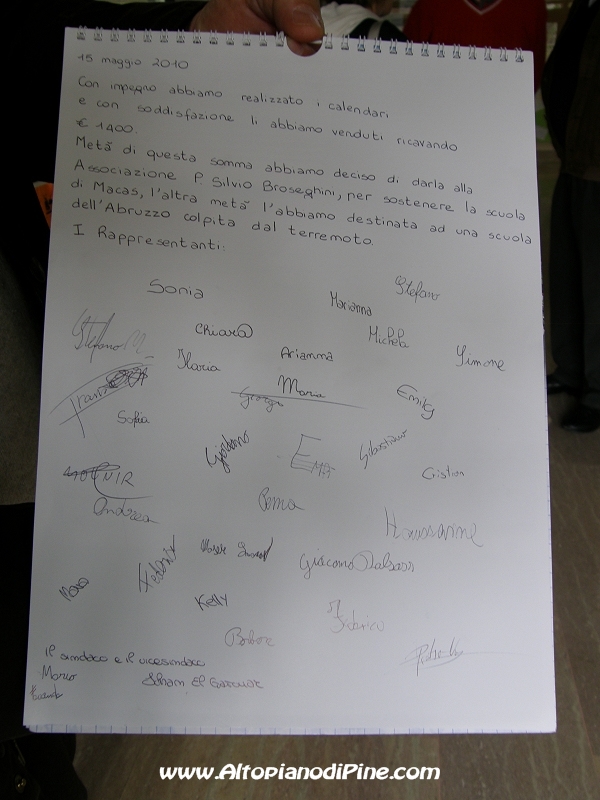 15 maggio 2010
Con impegno abbiamo realizzato i calendari
e con soddisfazione li abbiamo venduti ricavando
€ 1400.
Metà di questa somma abbiamo deciso di darla alla
Associazione P. Silvio Broseghini, per sostenere la scuola
di Macas, l'altra metà l'abbiamo destinata ad una scuola
dell'Abruzzo colpita dal terremoto.
I Rappresentanti:
Sonia
Stefano
Marianna
Stefano M.
Chiara
Michela
Ilaria
Arianna
Simone
Maria
Emily
Sofia
Giordano
Ema
Sebastiano
Cristian
Andrea
Houssaine
Giacomo Dalsass
Kelly
Federico
Il sindaco e il vicesindaco
Marco
Ilham El
www.AltopianodiPine.com